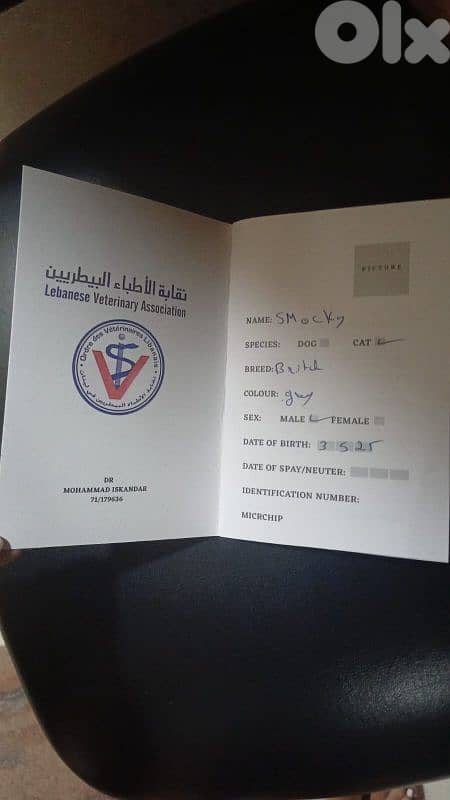 OLX
نقابة الأطباء البيطريين
Lebanese Veterinary Association
Ordre des Vétérinaires Libanais
نقابة الأطباء البيطريين في لبنان
V
DR
MOHAMMAD ISKANDAR
71/179636
PICTURE
NAME: SMOCKY
SPECIES: DOG CAT
BREED: British
COLOUR: grey
SEX: MALE FEMALE
DATE OF BIRTH: 3 5 25
DATE OF SPAY/NEUTER:
IDENTIFICATION NUMBER:
MICRCHIP